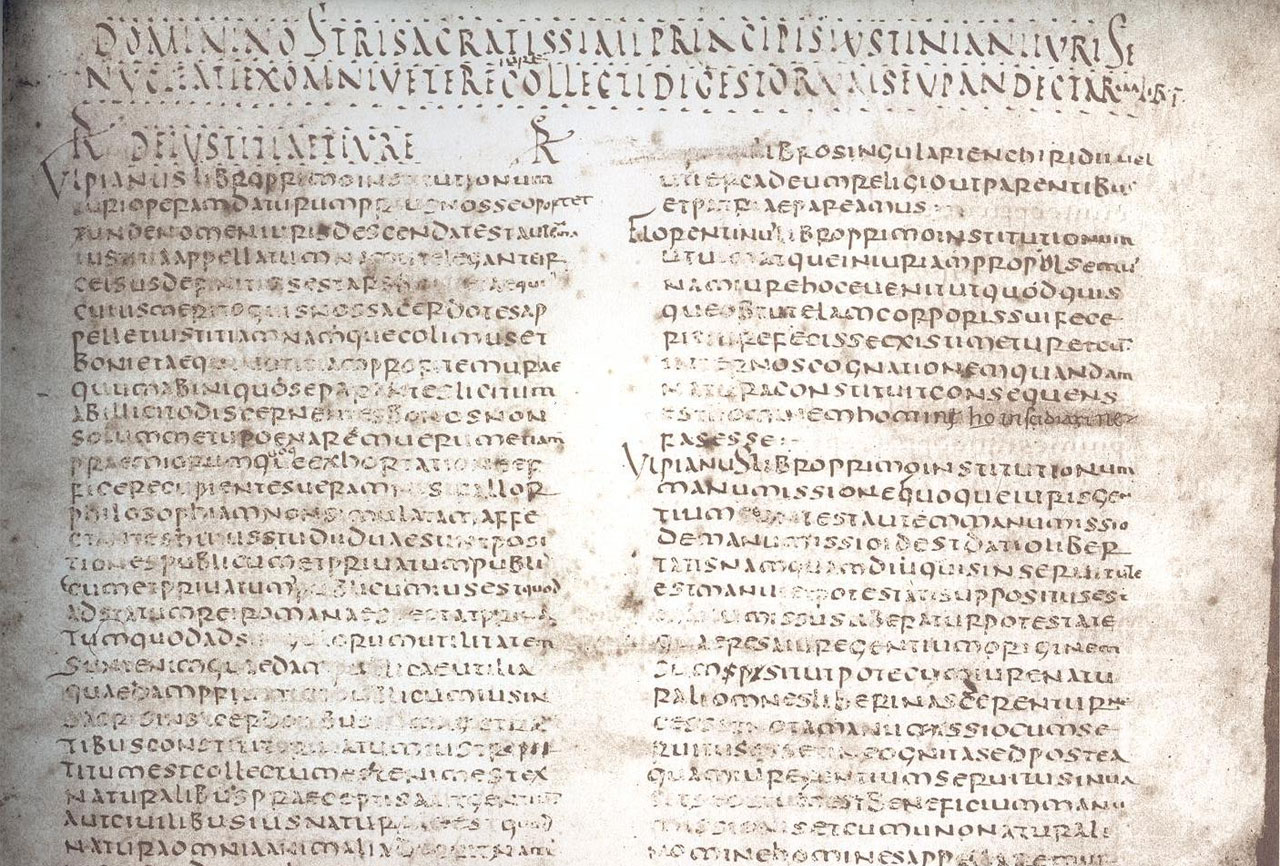 DOMINI NOSTRI SACRATISSIMI PRINCIPIS IUSTINIANI IURIS E
NUCLEATI EX OMNI VETERE IURE COLLECTI DIGESTORUM SEU PANDECTARum LIB I
R DE IUSTITIA ET IURE R
Ulpianus libro primo institutionum
iuri operam daturum prius nosse oportet
unde nomen iuris descendat est autem a
iustitia appellatum nam ut eleganter
celsus definit ius est ars boni et aequi
cuius merito quis nos sacerdotes ap
pellet iustitiam namque colimus et
boni et aequi notitiam profitemur ae
quum ab iniquo separantes licitum
ab illicito discernentes bonos non
solum metu poenarum uerum etiam
praemiorum quoque exhortatione ef
ficere cupientes ueram nisi fallor
philosophiam non simulatam affe
ctantes huius studii duae sunt posi
tiones publicum et priuatum publi
cum et priuatum publicum ius est quod
ad statum rei romanae spectat priua
tum quod ad singulorum utilitatem
sunt enim quaedam publicae utilia
quaedam priuatim publicum ius in
sacris in sacerdotibus in magistra
tibus constitit priuatum ius tripertitum
titum est collectum etenim est ex
naturalibus praeceptis aut gentium
aut ciuilibus ius naturale est quod
natura omnia animalia docuit nam
libro singulari enchiridii uel
uti erga deum religio ut parentibus
et patriae pareamus
Florentinus libro primo institutionum
ut uim atque iniuriam propulsemus
nam iure hoc euenit ut quod quis
que ob tutelam corporis sui fece
rit iure fecisse existimetur et cum
inter nos cognationem quandam
natura constituit consequens
est hominem homini insidiari ne
fas esse
Ulpianus libro primo institutionum
manumissiones quoque iuris gen
tium sunt est autem manumissio
de manu missio id est datio liber
tatis nam quamdiu quis in seruitute
est manui et potestati suppositus est
manumissus liberatur potestate
quae res a iure gentium originem
sumpsit utpote cum iure natu
rali omnes liberi nascerentur nec
esset nota manumissio cum se
ruitus esset incognita sed postea
quam iure gentium seruitus inua
sit secutum est beneficium manu
missionis et cum uno naturali
nomine homines appellaremur